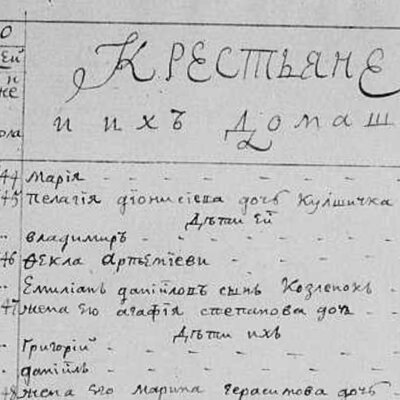 О
ЕЙ
И
ЖЕ
ола
КРЕСТЬЯНЕ
и ихъ домаш
44 Марія
45 Пелагія діонисіева дочь Кулішичка
Дѣти ей
владимиръ
46 Ѳекла Артеміеви
Емиліанъ даніиловъ сынъ Козлепокъ
47 жена его агафія степанова доч
Дѣти ихъ
Григорій
даніилъ
48 жена его Марина Герасимова дочь